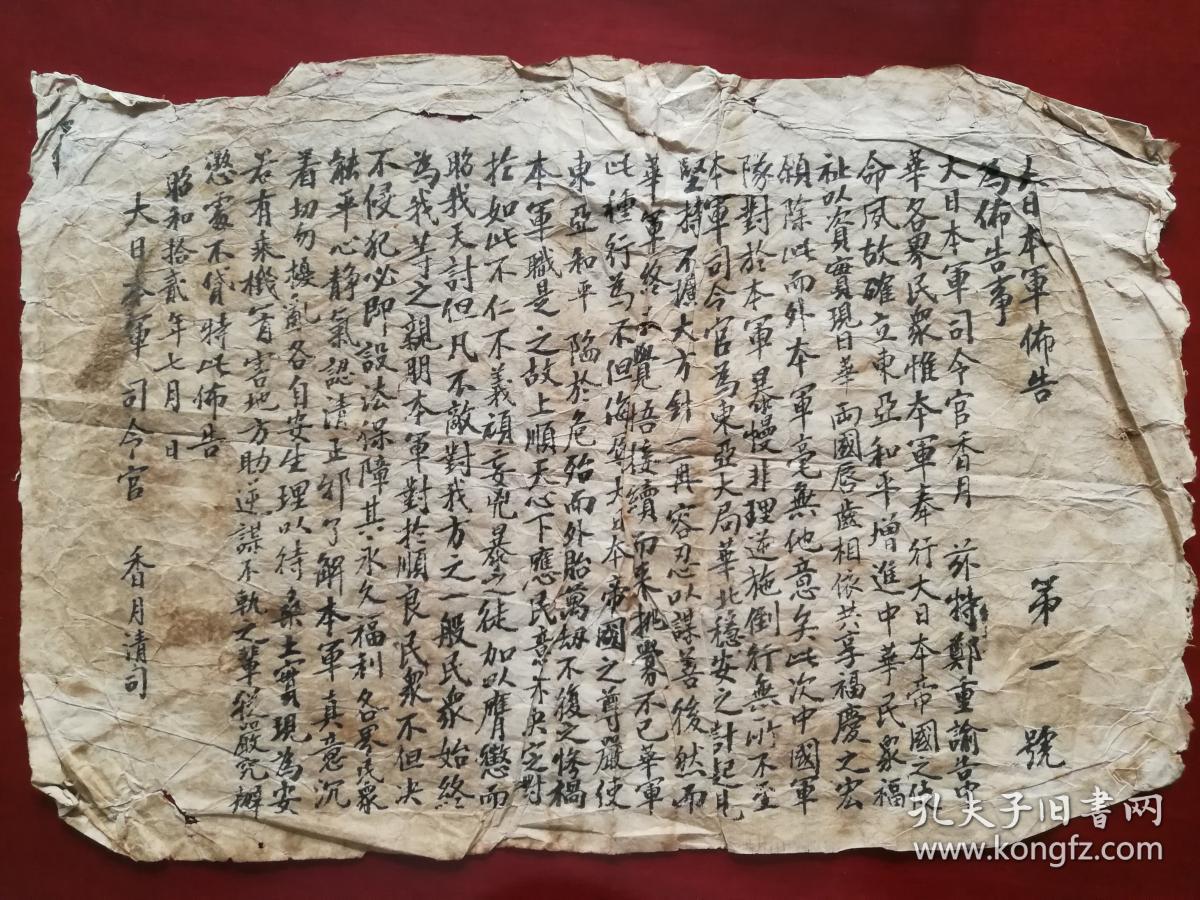 大日本軍佈告 第一號
為佈告事
大日本軍司令官香月 茲特鄭重諭告中
華各界民衆惟本軍奉行大日本帝國之使
命夙故確立東亞和平增進中華民衆福
祉以資實現日華兩國唇齒相依共享福慶之宏
領除此而外本軍毫無他意矣此次中國軍
隊對於本軍暴慢非理逆施倒行無所不至
本軍司令官為東亞大局華北穩安之計起見
堅持不擴大方針一再容忍以謀善後然而
華軍終不覺悟接續而來挑釁不已華軍
此種行為不但侮辱大日本帝國之尊嚴使
東亞和平陥於危殆而外胎萬劫不復之惨禍
本軍職是之故上順天心下應民意決定對
於如此不仁不義頑妄兇暴之徒加以膺懲而
昭我天討但凡不敵對我方之一般民衆始終
為我等之親朋本軍對於順良民衆不但決
不侵犯必即設法保障其永久福利各界民衆
能平心静氣認清正邪了解本軍真意沉
着切勿擾亂各自安生理以待桑土實現為安
若有乘機害地方助逆謀不軌之輩從嚴究辦
懲處不貸特此佈告
昭和拾貳年七月 日
大日本軍司令官 香月清司
孔夫子旧书网
www.kongfz.com